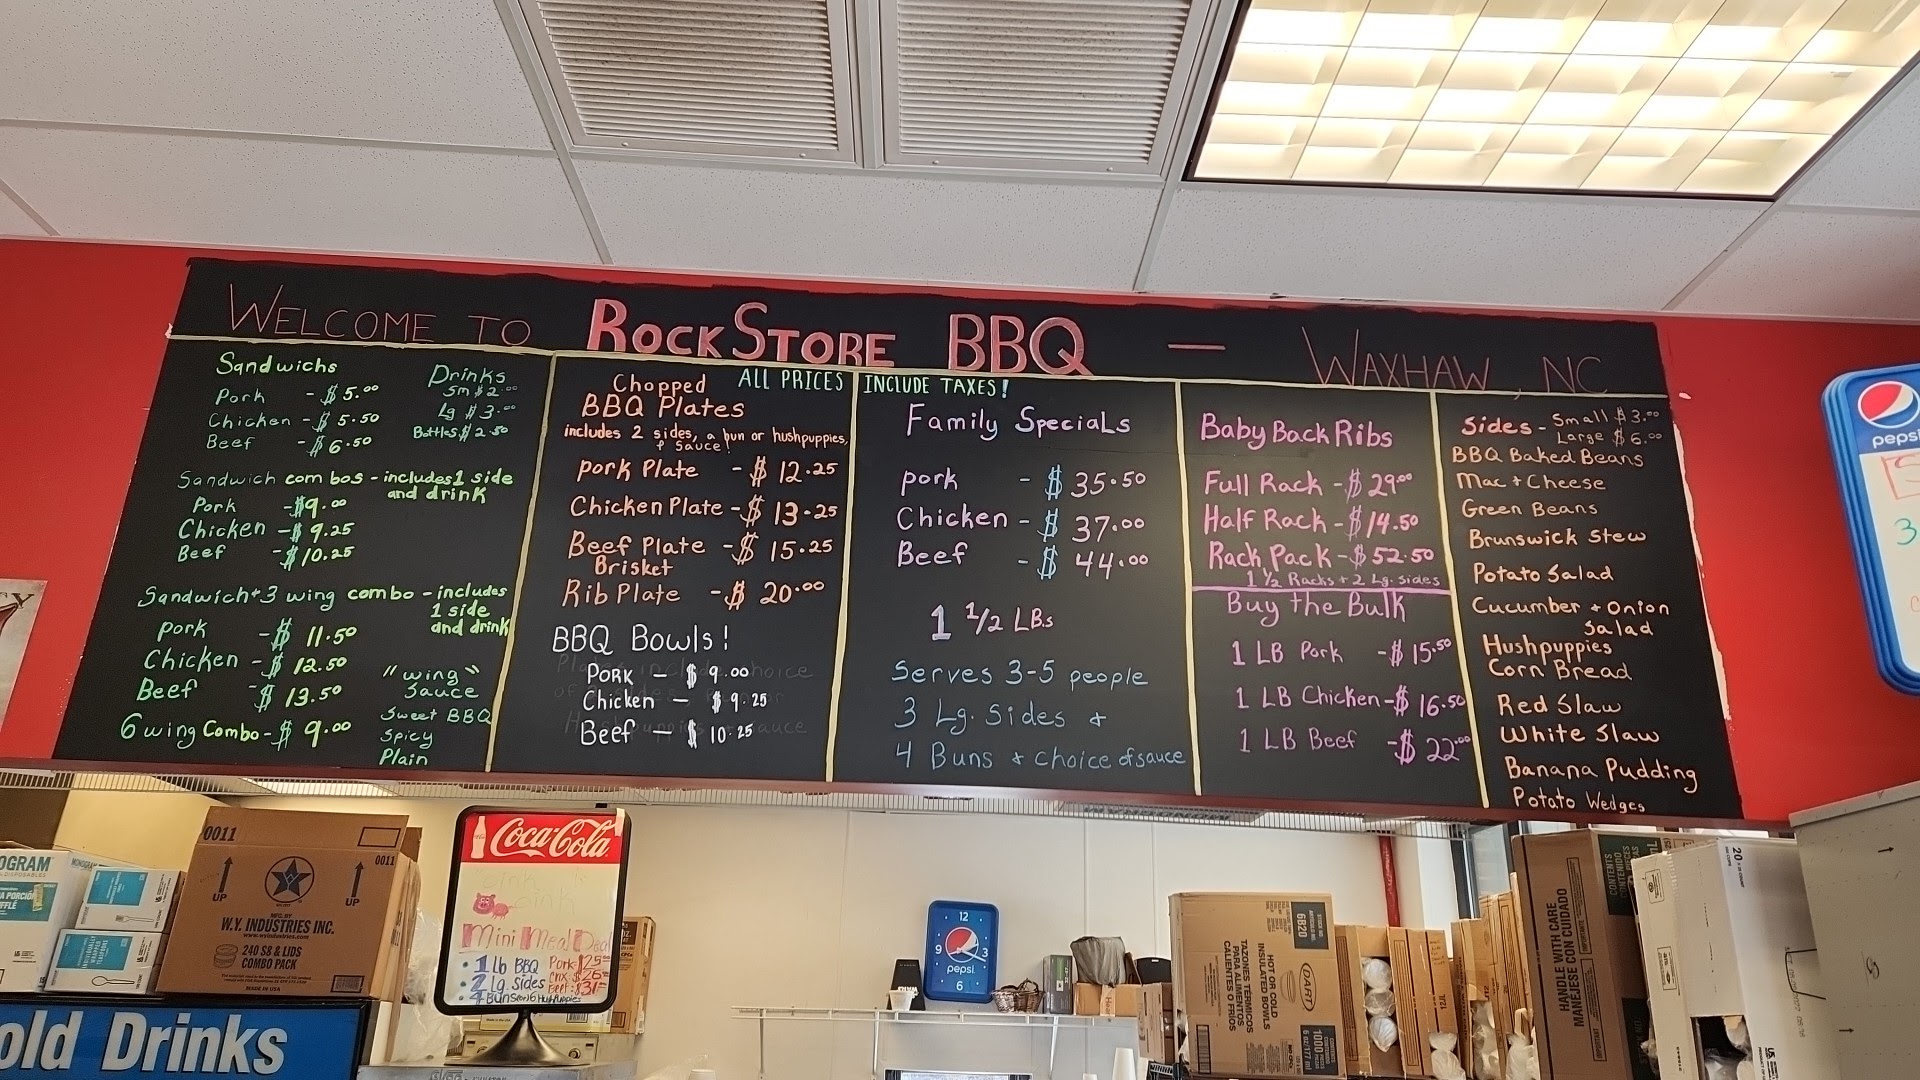 WELCOME TO ROCKSTORE BBQ — WAXHAW, NC
Sandwichs
Pork - $5.00
Chicken - $5.50
Beef - $6.50
Drinks
Sm $2.00
Lg $3.00
Bottles $2.50
Sandwich combos - includes 1 side
and drink
Pork - $9.00
Chicken - $9.25
Beef - $10.25
Sandwich + 3 wing combo - includes
1 side
and drink
Pork - $11.50
Chicken - $12.50
Beef - $13.50
6 wing Combo - $9.00
"wing"
Sauce
Sweet BBQ
Spicy
Plain
ALL PRICES INCLUDE TAXES!
Chopped
BBQ Plates
includes 2 sides, a bun or hushpuppies,
& Sauce!
Pork Plate - $12.25
Chicken Plate - $13.25
Beef Plate - $15.25
Brisket
Rib Plate - $20.00
BBQ Bowls!
Pork — $9.00
Chicken — $9.25
Beef — $10.25
Family Specials
Pork - $35.50
Chicken - $37.00
Beef - $44.00
1 1/2 LBs
Serves 3-5 people
3 Lg. Sides &
4 Buns & choice of sauce
Baby Back Ribs
Full Rack - $29.00
Half Rack - $14.50
Rack Pack - $52.50
1 1/2 Racks + 2 Lg. sides
Buy the Bulk
1 LB Pork - $15.50
1 LB Chicken - $16.50
1 LB Beef - $22.00
Sides - Small $3.00
Large $6.00
BBQ Baked Beans
Mac + Cheese
Green Beans
Brunswick Stew
Potato Salad
Cucumber + Onion
Salad
Hushpuppies
Corn Bread
Red Slaw
White Slaw
Banana Pudding
Potato Wedges
pepsi
0011
0011
UP
UP
W.Y. INDUSTRIES INC.
240 S8 & LIDS
COMBO PACK
MADE IN USA
old Drinks
Coca-Cola
oink
Mini Meal Deal
1 lb BBQ
2 Lg. sides
4 Buns or 6 Hushpuppies
12
3
6
9
pepsi
6B20
DART
HOT OR COLD
INSULATED BOWLS
TAZONES TERMICOS
PARA ALIMENTOS
CALIENTES O FRIOS
HANDLE WITH CARE
MANÉJESE CON CUIDADO
CONTENTS
CONTENIDO